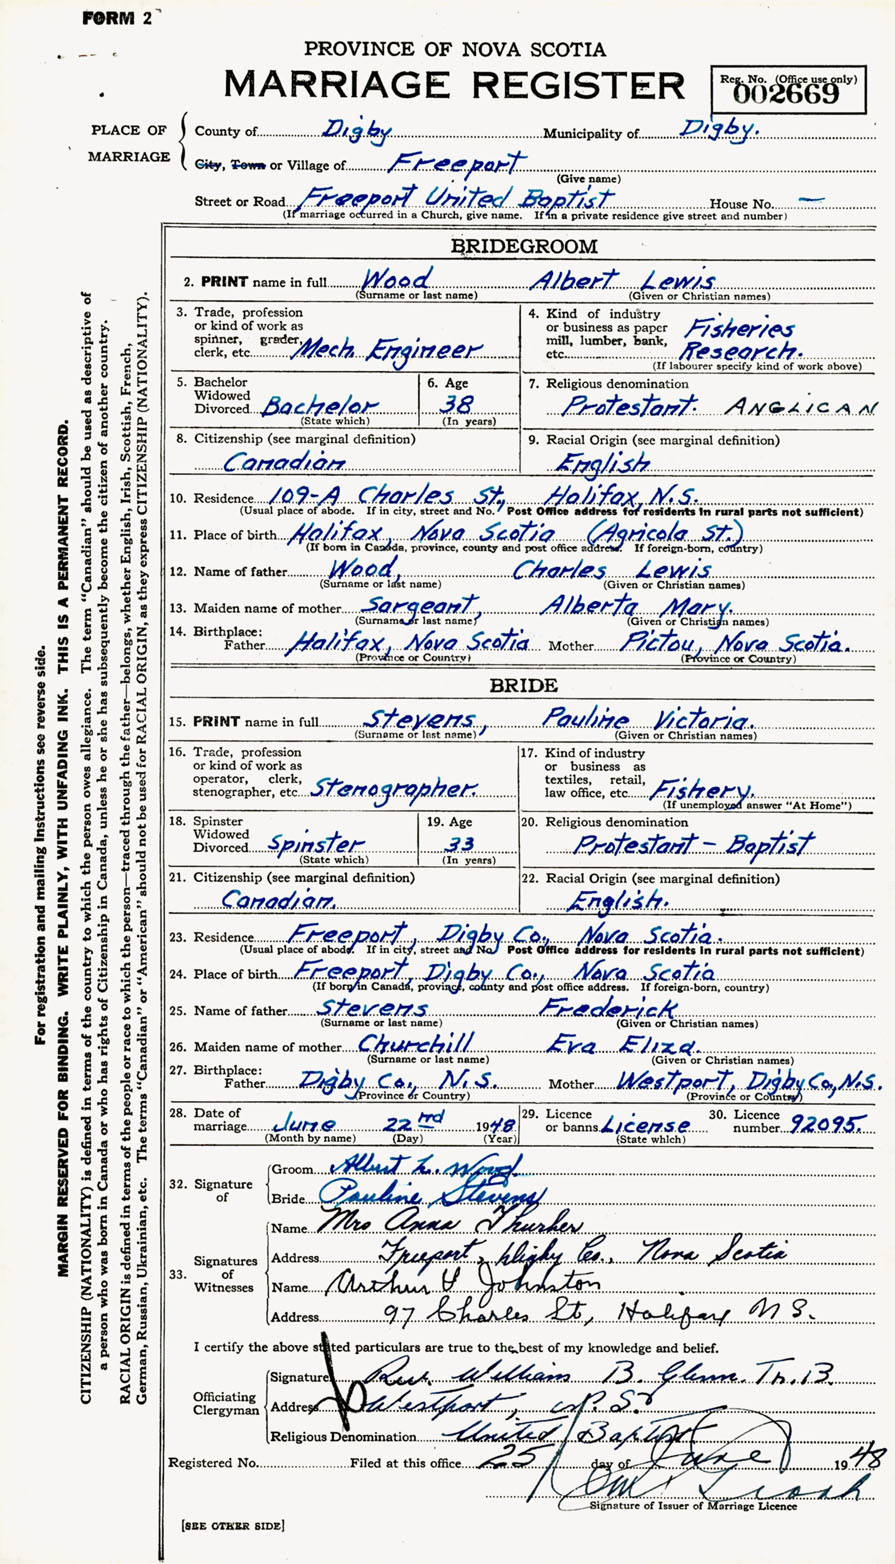 FORM 2
PROVINCE OF NOVA SCOTIA
MARRIAGE REGISTER
Reg. No. (Office use only)
002669
PLACE OF MARRIAGE
County of Digby Municipality of Digby.
City, Town or Village of Freeport
(Give name)
Street or Road Freeport United Baptist House No. —
(If marriage occurred in a Church, give name. If in a private residence give street and number)
BRIDEGROOM
2. PRINT name in full Wood Albert Lewis
(Surname or last name) (Given or Christian names)
3. Trade, profession or kind of work as spinner, grader, clerk, etc. Mech. Engineer
4. Kind of industry or business as paper mill, lumber, bank, etc. Fisheries Research.
(If labourer specify kind of work above)
5. Bachelor Widowed Divorced Bachelor
(State which)
6. Age 38
(In years)
7. Religious denomination
Protestant. ANGLICAN
8. Citizenship (see marginal definition)
Canadian
9. Racial Origin (see marginal definition)
English
10. Residence 109-A Charles St., Halifax, N.S.
(Usual place of abode. If in city, street and No. Post Office address for residents in rural parts not sufficient)
11. Place of birth Halifax, Nova Scotia (Agricola St.)
(If born in Canada, province, county and post office address. If foreign-born, country)
12. Name of father Wood, Charles Lewis
(Surname or last name) (Given or Christian names)
13. Maiden name of mother Sargeant, Alberta Mary.
(Surname or last name) (Given or Christian names)
14. Birthplace:
Father Halifax, Nova Scotia Mother Pictou, Nova Scotia.
(Province or Country) (Province or Country)
BRIDE
15. PRINT name in full Stevens, Pauline Victoria.
(Surname or last name) (Given or Christian names)
16. Trade, profession or kind of work as operator, clerk, stenographer, etc. Stenographer.
17. Kind of industry or business as textiles, retail, law office, etc. Fishery.
(If unemployed answer "At Home")
18. Spinster Widowed Divorced Spinster
(State which)
19. Age 33
(In years)
20. Religious denomination
Protestant – Baptist
21. Citizenship (see marginal definition)
Canadian.
22. Racial Origin (see marginal definition)
English.
23. Residence Freeport, Digby Co., Nova Scotia.
(Usual place of abode. If in city, street and No. Post Office address for residents in rural parts not sufficient)
24. Place of birth Freeport, Digby Co., Nova Scotia
(If born in Canada, province, county and post office address. If foreign-born, country)
25. Name of father Stevens Frederick
(Surname or last name) (Given or Christian names)
26. Maiden name of mother Churchill Eva Eliza.
(Surname or last name) (Given or Christian names)
27. Birthplace:
Father Digby Co., N.S. Mother Westport, Digby Co., N.S.
(Province or Country) (Province or Country)
28. Date of marriage June 22nd 1948
(Month by name) (Day) (Year)
29. Licence or banns License
(State which)
30. Licence number 92095.
32. Signature of
Groom Albert L. Wood
Bride Pauline Stevens
33. Signatures of Witnesses
Name Mrs Anna Thurber
Address Freeport, Digby Co., Nova Scotia
Name Arthur Johnston
Address 97 Charles St., Halifax N.S.
I certify the above stated particulars are true to the best of my knowledge and belief.
Officiating Clergyman
Signature Rev. William B. Glenn. Th.B.
Address Westport, N.S.
Religious Denomination United Baptist
Registered No. Filed at this office 25 day of June 1948
Signature of Issuer of Marriage Licence
[SEE OTHER SIDE]
For registration and mailing instructions see reverse side.
MARGIN RESERVED FOR BINDING. WRITE PLAINLY, WITH UNFADING INK. THIS IS A PERMANENT RECORD.
CITIZENSHIP (NATIONALITY) is defined in terms of the country to which the person owes allegiance. The term "Canadian" should be used as descriptive of
a person who was born in Canada or who has rights of Citizenship in Canada, unless he or she has subsequently become the citizen of another country.
RACIAL ORIGIN is defined in terms of the people or race to which the person—traced through the father—belongs, whether English, Irish, Scottish, French,
German, Russian, Ukrainian, etc. The terms "Canadian" or "American" should not be used for RACIAL ORIGIN, as they express CITIZENSHIP (NATIONALITY).